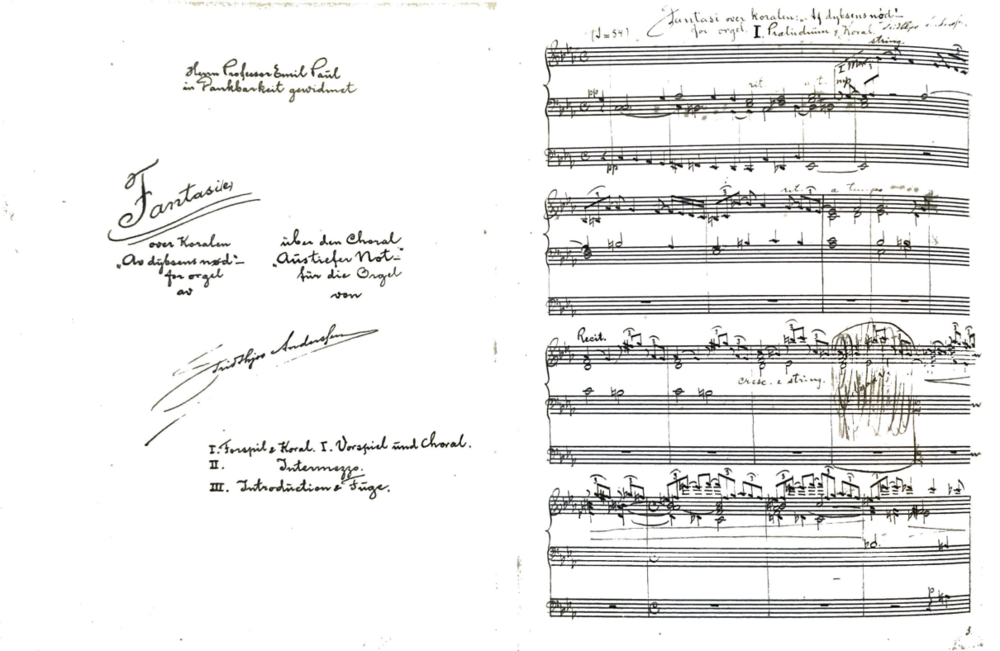 Herrn Professor Emil Paul
in Dankbarkeit gewidmet
Fantasi(e)
over Koralen
„Av dybsens nød"
for orgel
av
über den Choral
„Austiefer Not"
für die Orgel
von
Fridthjov Anderssen
I. Forspil & Koral. I. Vorspiel und Choral.
II. Intermezzo.
III. Introduction & Fuge.
Fantasi over Koralen: „Af dybsens nød"
for orgel
(♩=54)
I. Praeludium & Koral
string.
I Man.
mp
pp
rit
a t.
pp
rit.
a tempo
Recit.
cresc. e string.
3.